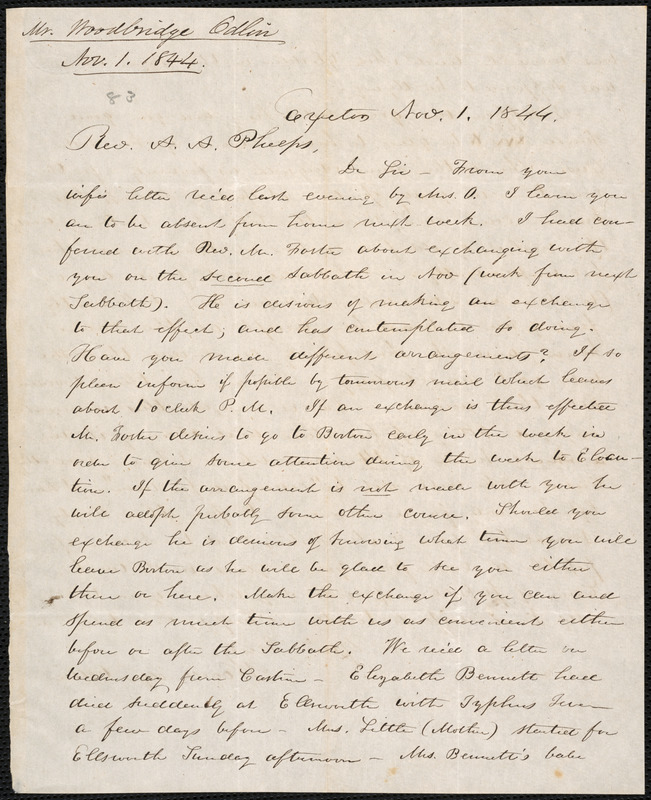 Mr. Woodbridge Odlin
Nov. 1. 1844.
83
Exeter Nov. 1. 1844.
Rev. A. A. Phelps,
Dr Sir – From your
wife's letter rec'd last evening by Mrs. O. I learn you
are to be absent from home next week. I had con-
ferred with Rev. Mr. Foster about exchanging with
you on the second Sabbath in Nov (week from next
Sabbath). He is desirous of making an exchange
to that effect; and has contemplated so doing.
Have you made different arrangements? If so
please inform if possible by tomorrows mail which leaves
about 1 o clock P. M. If an exchange is thus effected
Mr. Foster desires to go to Boston early in the week in
order to give some attention during the week to Elocu-
tion. If the arrangement is not made with you he
will adopt, probably some other course. Should you
exchange he is desirous of knowing what time you will
leave Boston as he will be glad to see you either
there or here. Make the exchange if you can and
spend as much time with us as convenient either
before or after the Sabbath. We rec'd a letter on
Wednesday from Castine – Elizabeth Bennett had
died suddenly at Ellsworth with Typhus Fever
a few days before – Mrs. Little (Mother) started for
Ellsworth Sunday afternoon – Mrs. Bennett's babe